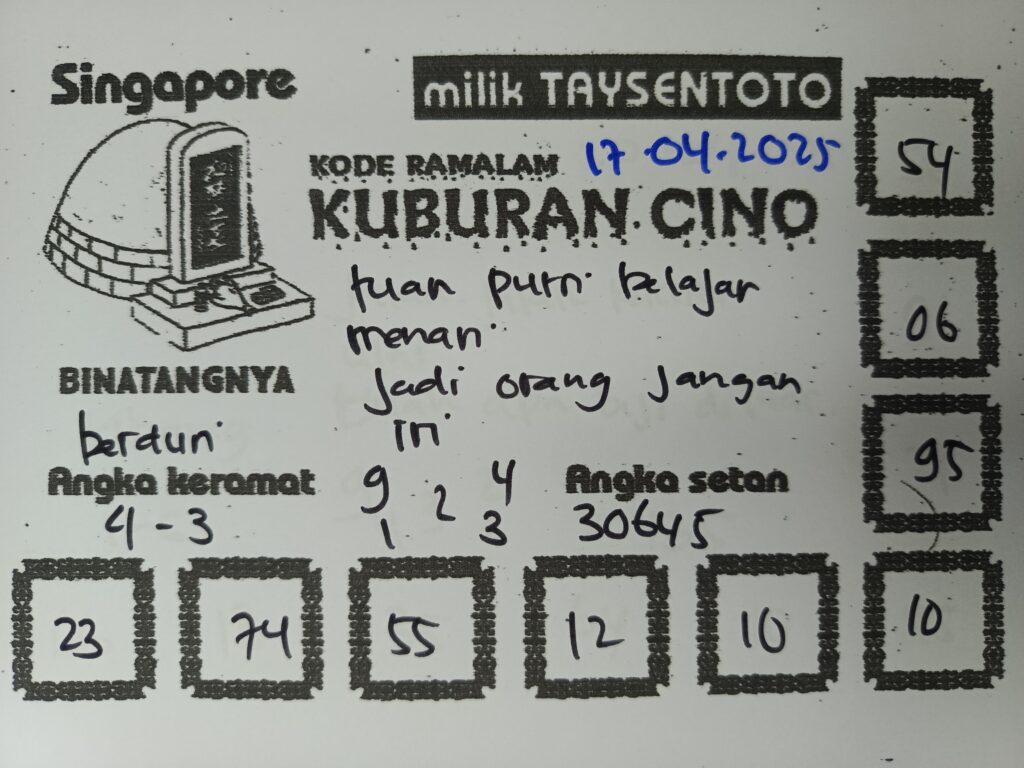 Singapore
milik TAYSENTOTO
KODE RAMALAM 17.04.2025
KUBURAN CINO
tuan putri belajar
menari
jadi orang jangan
iri
BINATANGNYA
berduri
Angka keramat
4 - 3
9 2 4
1 3
Angka setan
30645
54
06
95
23 74 55 12 10 10